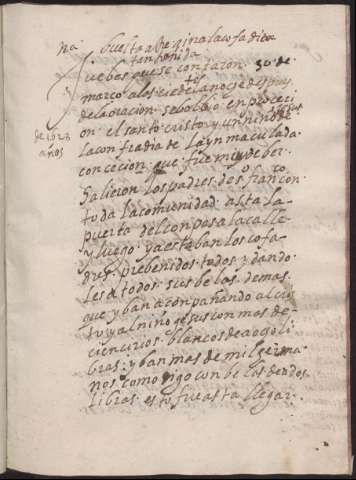 na buelta a Reginalacofadica
tan florida
Juebes que se contaron 30 de
marco a los seis de la noche despues
de la oracion se bolbio en proceci
on el santo cristo y un niño de
de 1623
años
la con fradia de la ynmaculada
concecion que fue muy de ber
Salieron los padres de s fran.co con
tuda la comunidad asta la
puerta del conpas a la calle
y luego ya estaban los cofa
dres prebenidos todos y dando
les a todos sus belas demas
que yban acon pañando al cris
to y al niño jesus con mas de
cien cirios blancos de a ocho li
bras yban mas de mil erma
nos como digo con belas de a dos
libras esto fue asta llegar